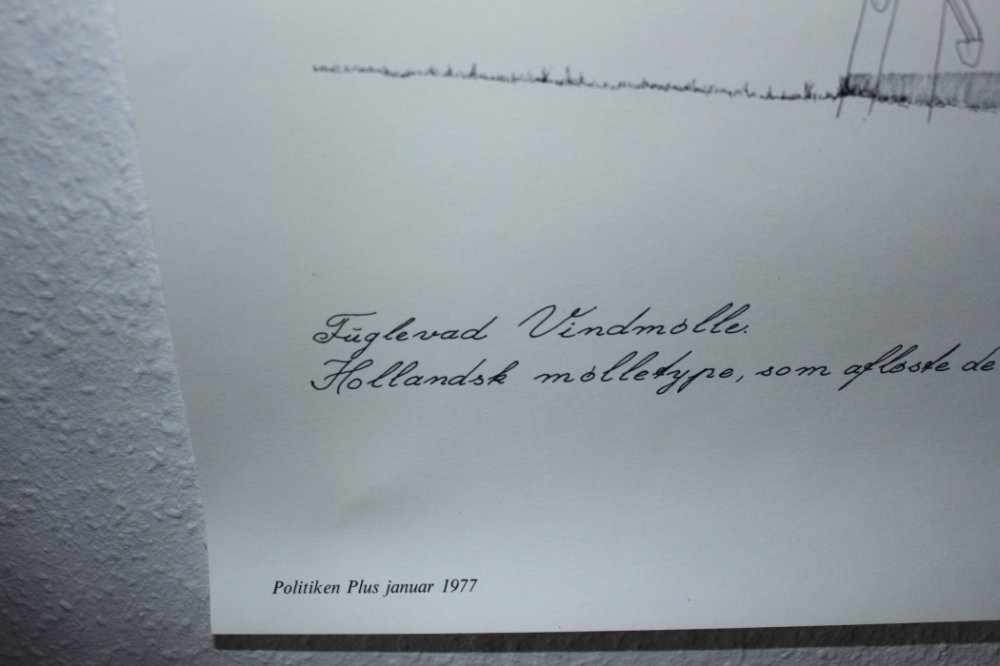 Fuglevad Vindmølle.
Hollandsk mølletype, som afløste de
Politiken Plus januar 1977